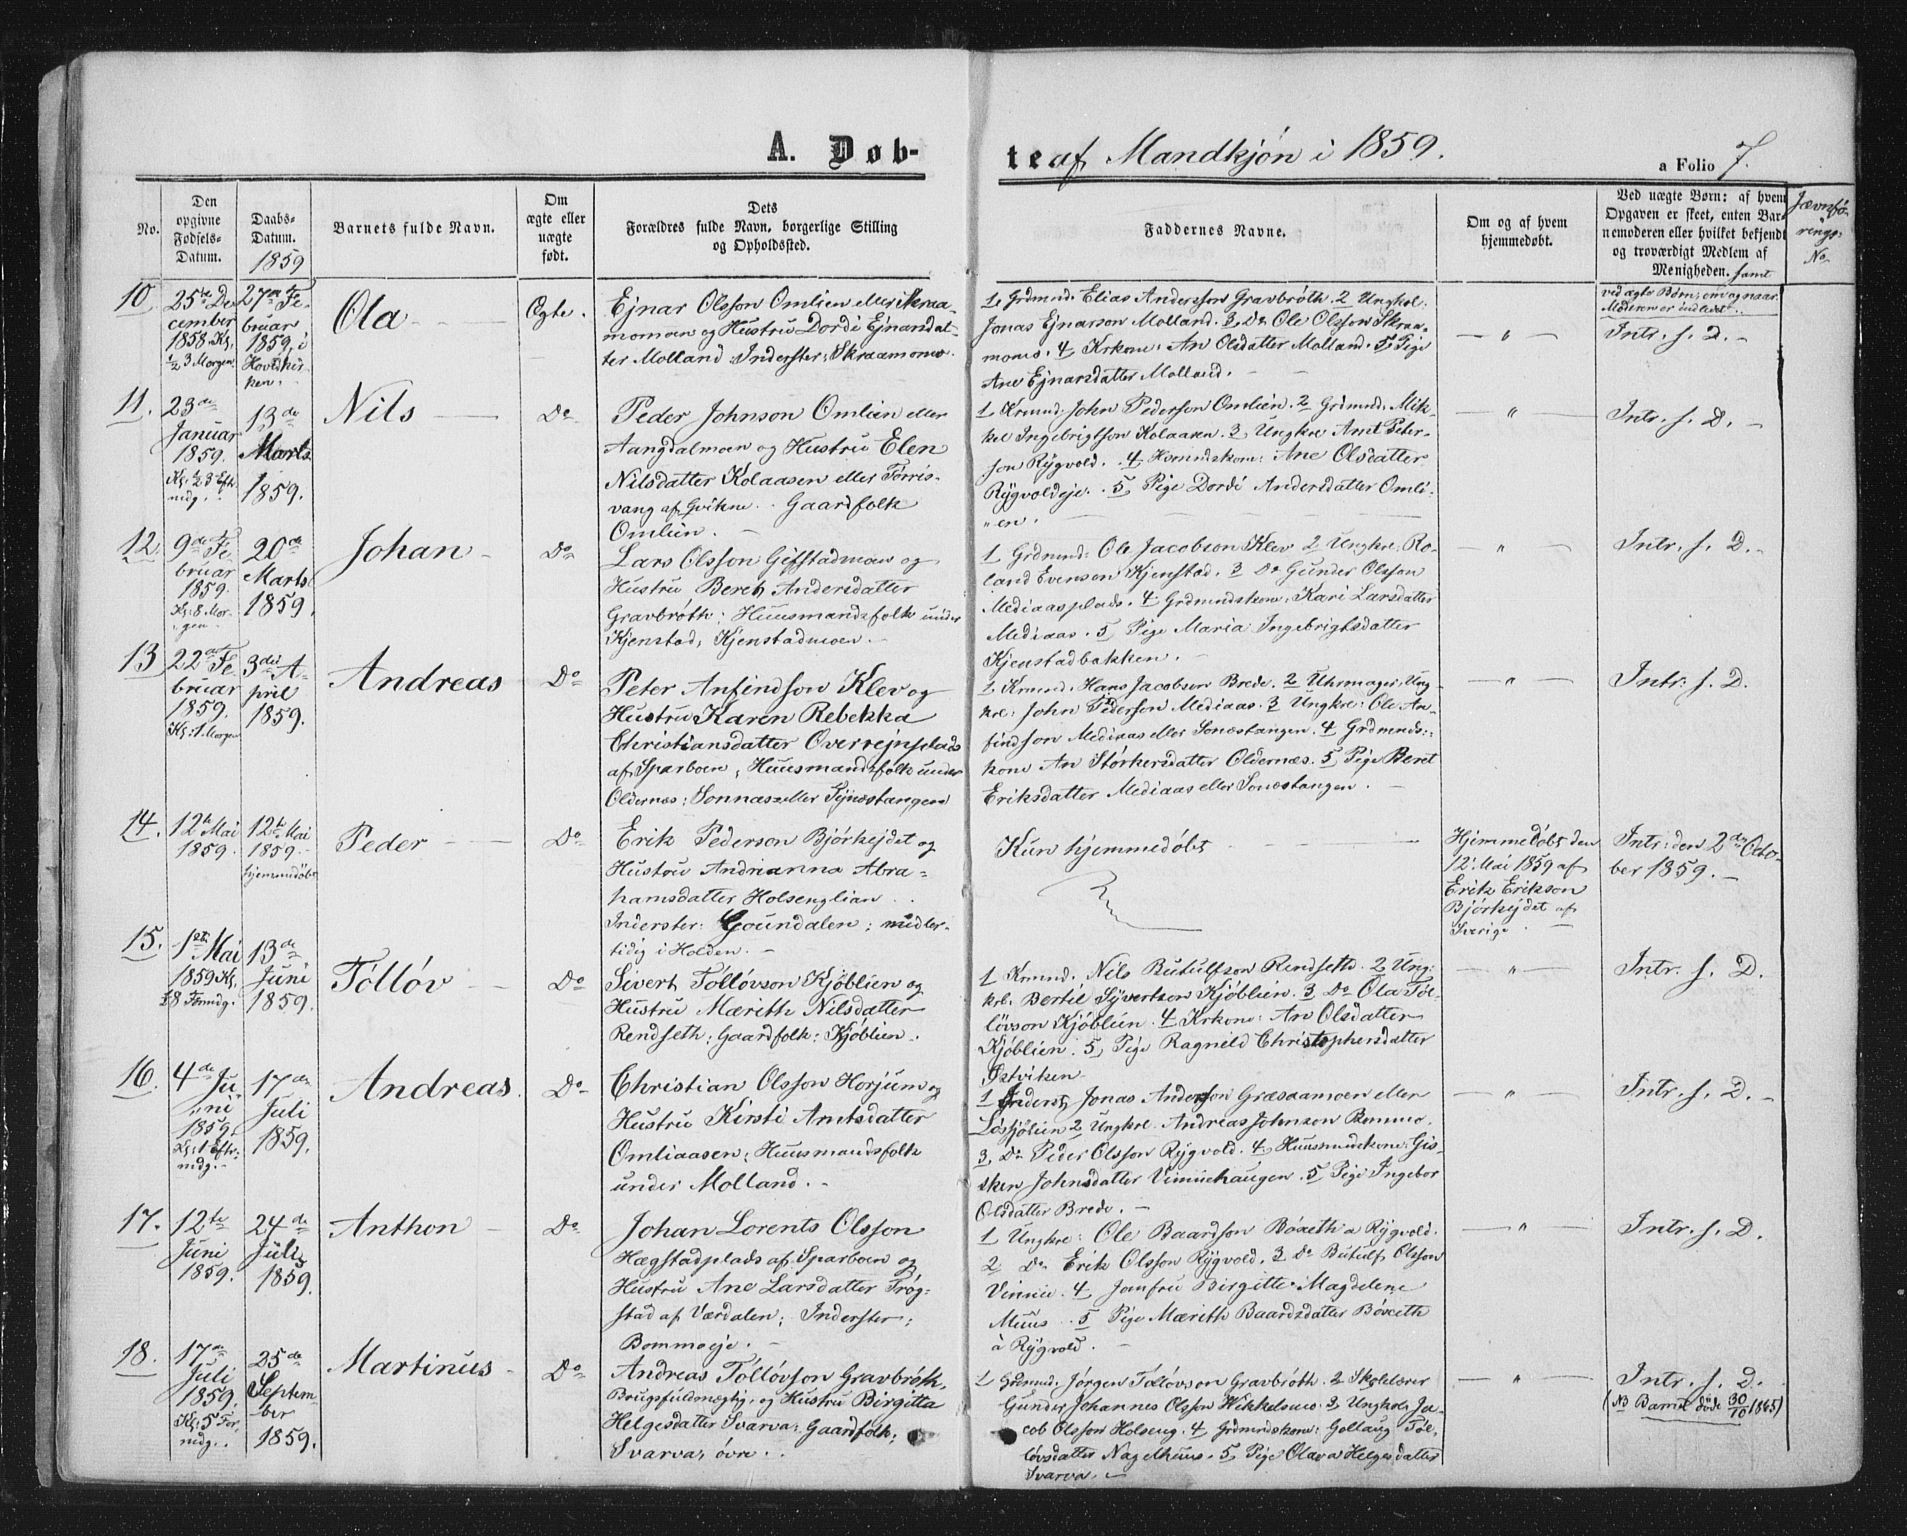 A. Døb-
te af Mandkjön i 1859.
a Folio 7.
No.
Den
opgivne
Fødsels-
Datum.
Daabs-
Datum.
1859
Barnets fulde Navn.
Om
ægte eller
uægte
født.
Dets
Forældres fulde Navn, borgerlige Stilling
og Opholdssted.
Faddernes Navne.
Om og af hvem
hjemmedøbt.
Ved uægte Børn: af hvem
Opgaven er skeet, enten Bar-
nemoderen eller hvilket bekjendt
og troværdigt Medlem af
Menigheden. samt
ved ægte Børn, om og naar
Moderen er indledet.
Jævnfö-
rings-
No.
10
25de De
cember
1858. Kl.
½ 3 Morgen
27de Fe-
bruar
1859. i
Hovedkir-
ken.
Ola
Ægte.
Ejnar Olsson Omlien eller Skraa-
momoen og Hustru Dordi Ejnarsdat-
ter Molland: Inderster: Skraamomo.
1. Grdmnd. Elias Andersson Gravbróth. 2 Ungkrl.
Jonas Ejnarson Molland. 3, Do Ole Olsson Skraa-
momo. 4 Krkone: An Olsdatter Molland. 5, Pige
Ane Ejnarsdatter Molland.
Intr. s. D.
11.
23de
Januar
1859.
Kl: ½3 Eft-
midg.
13de
Marts
1859.
Nils
Do
Peder Johnson Omlien eller
Aangdalmoen og Hustru Elen
Nilsdatter Kolaasen eller Forris-
vang af Gvikne. Gaardfolk
Omlien.
1 Krmnd. John Pederson Omlien. 2 Grdmnd. Mik-
kel Ingebrigtson Kolaasen. 3 Ungkre Amt Peter-
son Rÿgvold. 4 Hsmndskone: Ane Olsdatter
Rÿgvoldeje. 5, Pige Dordi Andersdatter Omli-
"en.
Intr. s. D.
12.
9de Fe-
bruar
1859.
Kl: 8 Mor-
gen
20de
Marts
1859.
Johan
Do
Lars Olsson Gifstadmoen og
Hustru Beret Andersdatter
Gravbróth; Huusmandsfolk under
Kjenstad; Kjenstadmoen.
1 Grdmnd: Ole Jacobson Klev 2 Ungkre. Ro-
land Evenson Kjenstad. 3 Do Gunder Olsson
Mediaasplads. 4 Grdmndskone, Kari Larsdatter
Mediaas. 5, Pige Maria Ingebrigtsdatter
Kjenstadbakken.
Intr. s. D.
13
22de Fe
bruar
1859.
Kl: 1 Morgen
3die A-
pril
1859.
Andreas
Do
Peter Anfindson Klev og
Hustru Karen Rebekka
Christiansdatter Overrejnsplads
af Sparboen; Huusmandsfolk under
Oldernæs: Sonnas eller Sejnestangen
1 Krmnd. Hans Jacobson Brede. 2 Uhrmager, Ung
kre: John Pederson Mediaas. 3 Ungkre: Ole An-
findson Mediaas eller Sonestangen. 4 Grdmnds-
kone An Störkersdatter Oldernæs. 5 Pige Beret
Eriksdatter Mediaas eller Sonestangen.
Intr. s. D.
14.
12te Mai
1859.
12te Mai
1859.
hjemmedöbt
Peder
Do
Erik Pederson Björkejdet og
Hustru Andrianna Abra-
hamsdatter Holsenglian.
Inderster: Goundalen; midler-
tidig i Holden.
Kun hjemmedöbt
Hjemmedöbt den
12. Mai 1859 af
Erik Erikson
Björkejdet af
Sverige.
Intr: den 2den Octo-
ber 1859.
15.
1ste Mai
1859 Kl.
8 Formdg.
13de
Juni
1859.
Tóllóv
Do
Sivert Tóllóvson Kjóblien og
Hustru Mærith Nilsdatter
Rendseth; Gaardfolk; Kjóblien.
1 Krmnd. Nils Butulfson Rendseth. 2 Ung-
krl. Bertil Sÿvertson Kjóblien. 3 Do Ola Tól-
lóvson Kjóblien. 4 Krkone: An Olsdatter
Kjóblien. 5, Pige Ragnild Christophersdatter
Østviken
Intr. s. D.
16.
4de Ju-
"ni
1859.
Kl: 1 Efter-
midg.
17de
Juli
1859.
Andreas.
Do
Christian Olsson Horjum og
Hustru Kirsti Amtsdatter
Omliaasen; Huusmandsfolk
under Molland.
1 Inderst, Jonas Anderson Græsaamoen eller
Lösjólien 2 Ungkre. Andreas Johnson Bommo.
3, Do Peder Olsson Rÿgvold. 4, Huusmndskone: Gis-
sken Johnsdatter Vinniehaugen. 5 Pige Ingebor
Olsdatter Brede.
Intr. s. D.
17.
12te
Juni
1859.
24de
Juli
1859.
Anthon
Do
Johan Lorents Olsson
Hægstadplads af Sparboen og
Hustru Ane Larsdatter Tróg-
stad af Værdalen; Inderster;
Bommoeje.
1 Ungkre: Ole Baardson Böseth a Rÿgvold.
2 Do Erik Olsson Rÿgvold. 3 Do Butulf Olsson
Vinnie. 4 Jomfru Birgitte Magdelene
Muus. 5 Pige Mærith Baardsdatter Böseth
à Rÿgvold.
Intr. s. D.
18.
17de
Juli
1859.
Kl: 5 For-
midg.
25de
Septem-
ber
1859.
Martinus
Do
Andreas Tóllóvson Gravbróth,
Brugsfuldmægtig, og Hustru Birgitta
Helgesdatter Svarva; Gaardfolk;
Svarva, övre.
1 Grdmnd. Jörgen Tóllóvson Gravbróth. 2 Skolelærer
Gunder Johannes Olsson Hikkelsmo. 3 Ungkrl. Ja-
cob Olsson Holseng. 4, Grdmndskone: Gollaug Tól-
lóvsdatter Nagelhuus. 5, Pige Olava Helgesdatter
Svarva.
Intr. s. D.
(NB Barnet döde 30/10 1865)